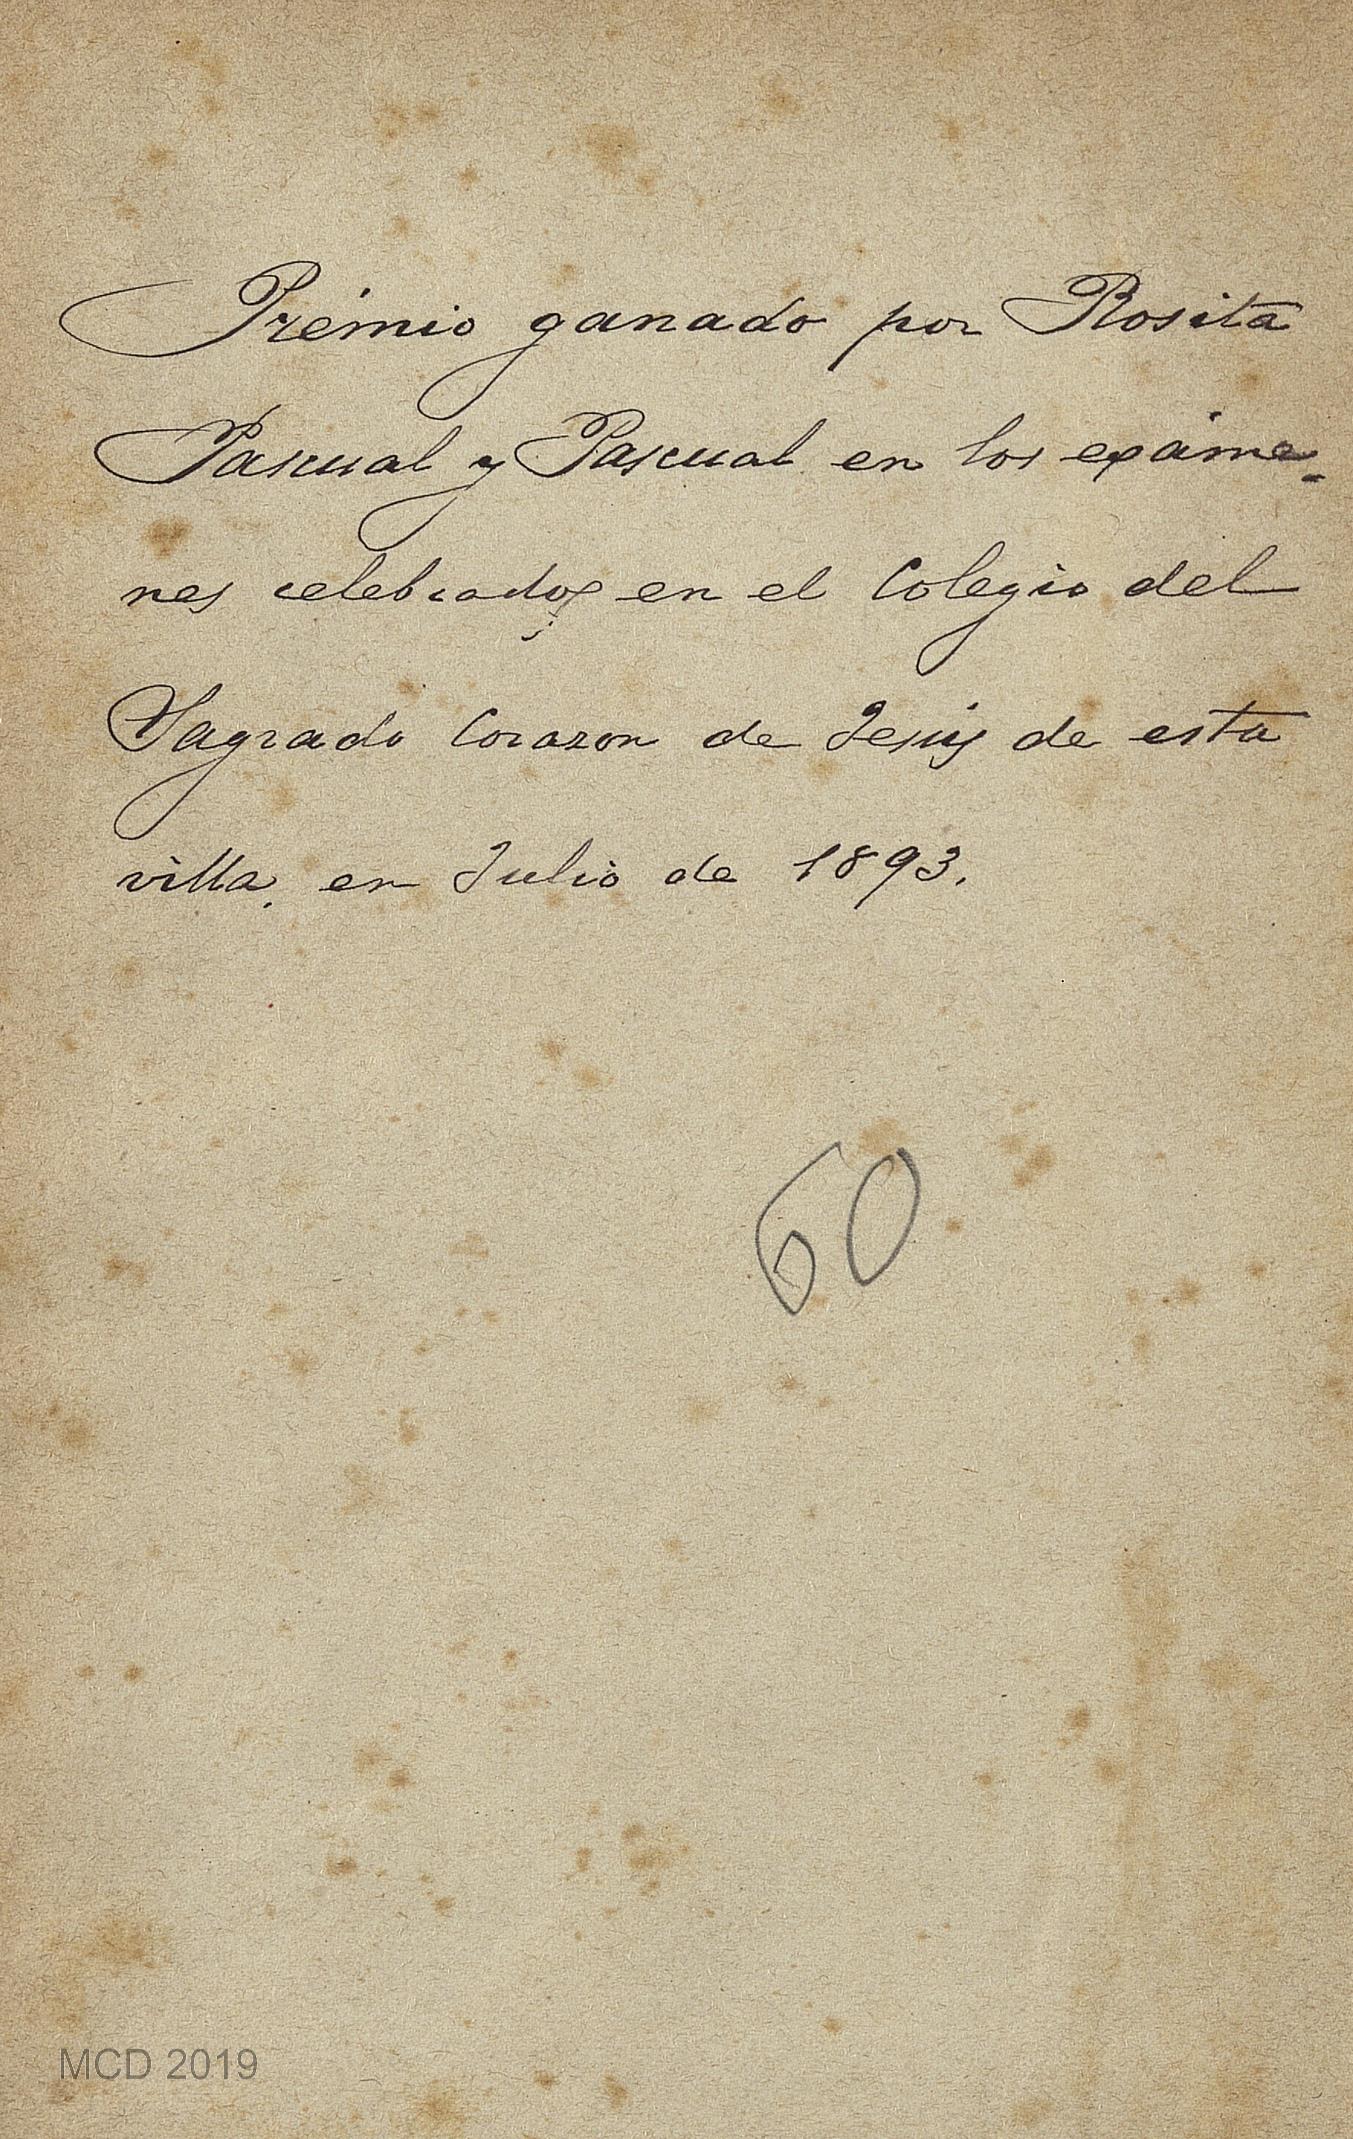 Prémio ganado por Rosita
Pascual y Pascual en los exáme-
nes celebrados en el Colegio del
Sagrado Corazon de Jesús de esta
villa, en Julio de 1893.
60
MCD 2019